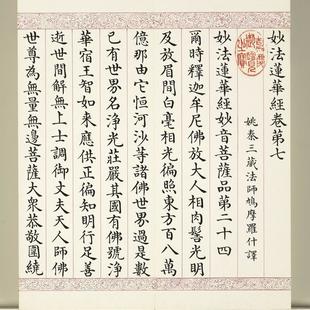 妙法蓮華經卷第七
姚秦三藏法師鳩摩羅什譯
妙法蓮華經妙音菩薩品第二十四
爾時釋迦牟尼佛放大人相肉髻光明
及放眉間白毫相光徧照東方百八萬
億那由他恒河沙等諸佛世界過是數
已有世界名淨光莊嚴其國有佛號淨
華宿王智如來應供正徧知明行足善
逝世間解無上士調御丈夫天人師佛
世尊為無量無邊菩薩大衆恭敬圍繞